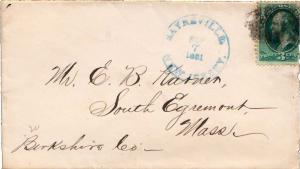 SAYREVILLE
7
1881
Mr. E. B. Karner,
South Egremont,
Mass.
Berkshire Co.